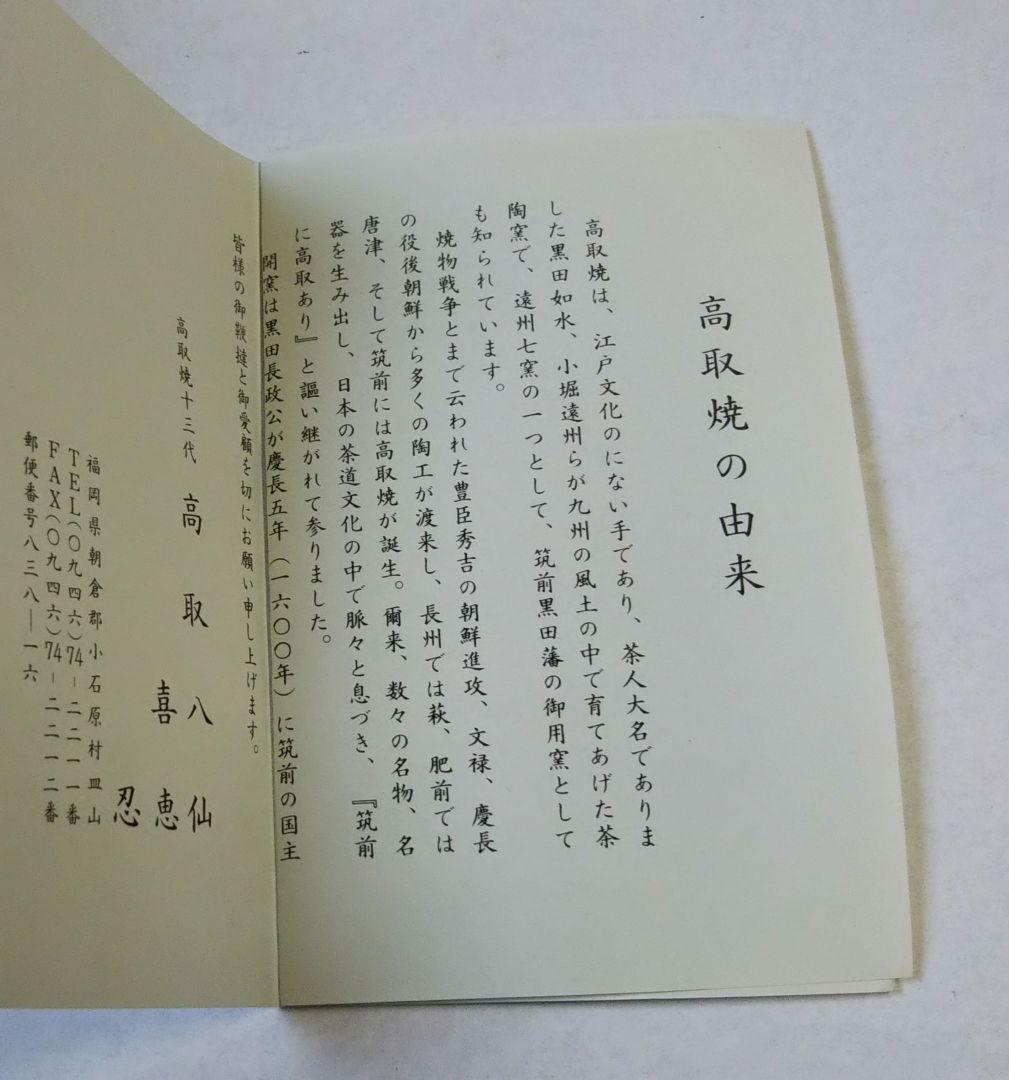 高取焼の由来
高取焼は、江戸文化のにない手であり、茶人大名でありま
した黒田如水、小堀遠州らが九州の風土の中で育てあげた茶
陶窯で、遠州七窯の一つとして、筑前黒田藩の御用窯として
も知られています。
焼物戦争とまで云われた豊臣秀吉の朝鮮進攻、文禄、慶長
の役後朝鮮から多くの陶工が渡来し、長州では萩、肥前では
唐津、そして筑前には高取焼が誕生。爾来、数々の名物、名
器を生み出し、日本の茶道文化の中で脈々と息づき、『筑前
に高取あり』と謳い継がれて参りました。
開窯は黒田長政公が慶長五年（一六〇〇年）に筑前の国主
皆様の御鞭撻と御愛顧を切にお願い申し上げます。
高取焼十三代 高取八仙
喜恵
忍
福岡県朝倉郡小石原村皿山
TEL(〇九四六)74-二二一一番
FAX(〇九四六)74-二二一二番
郵便番号八三八―一六